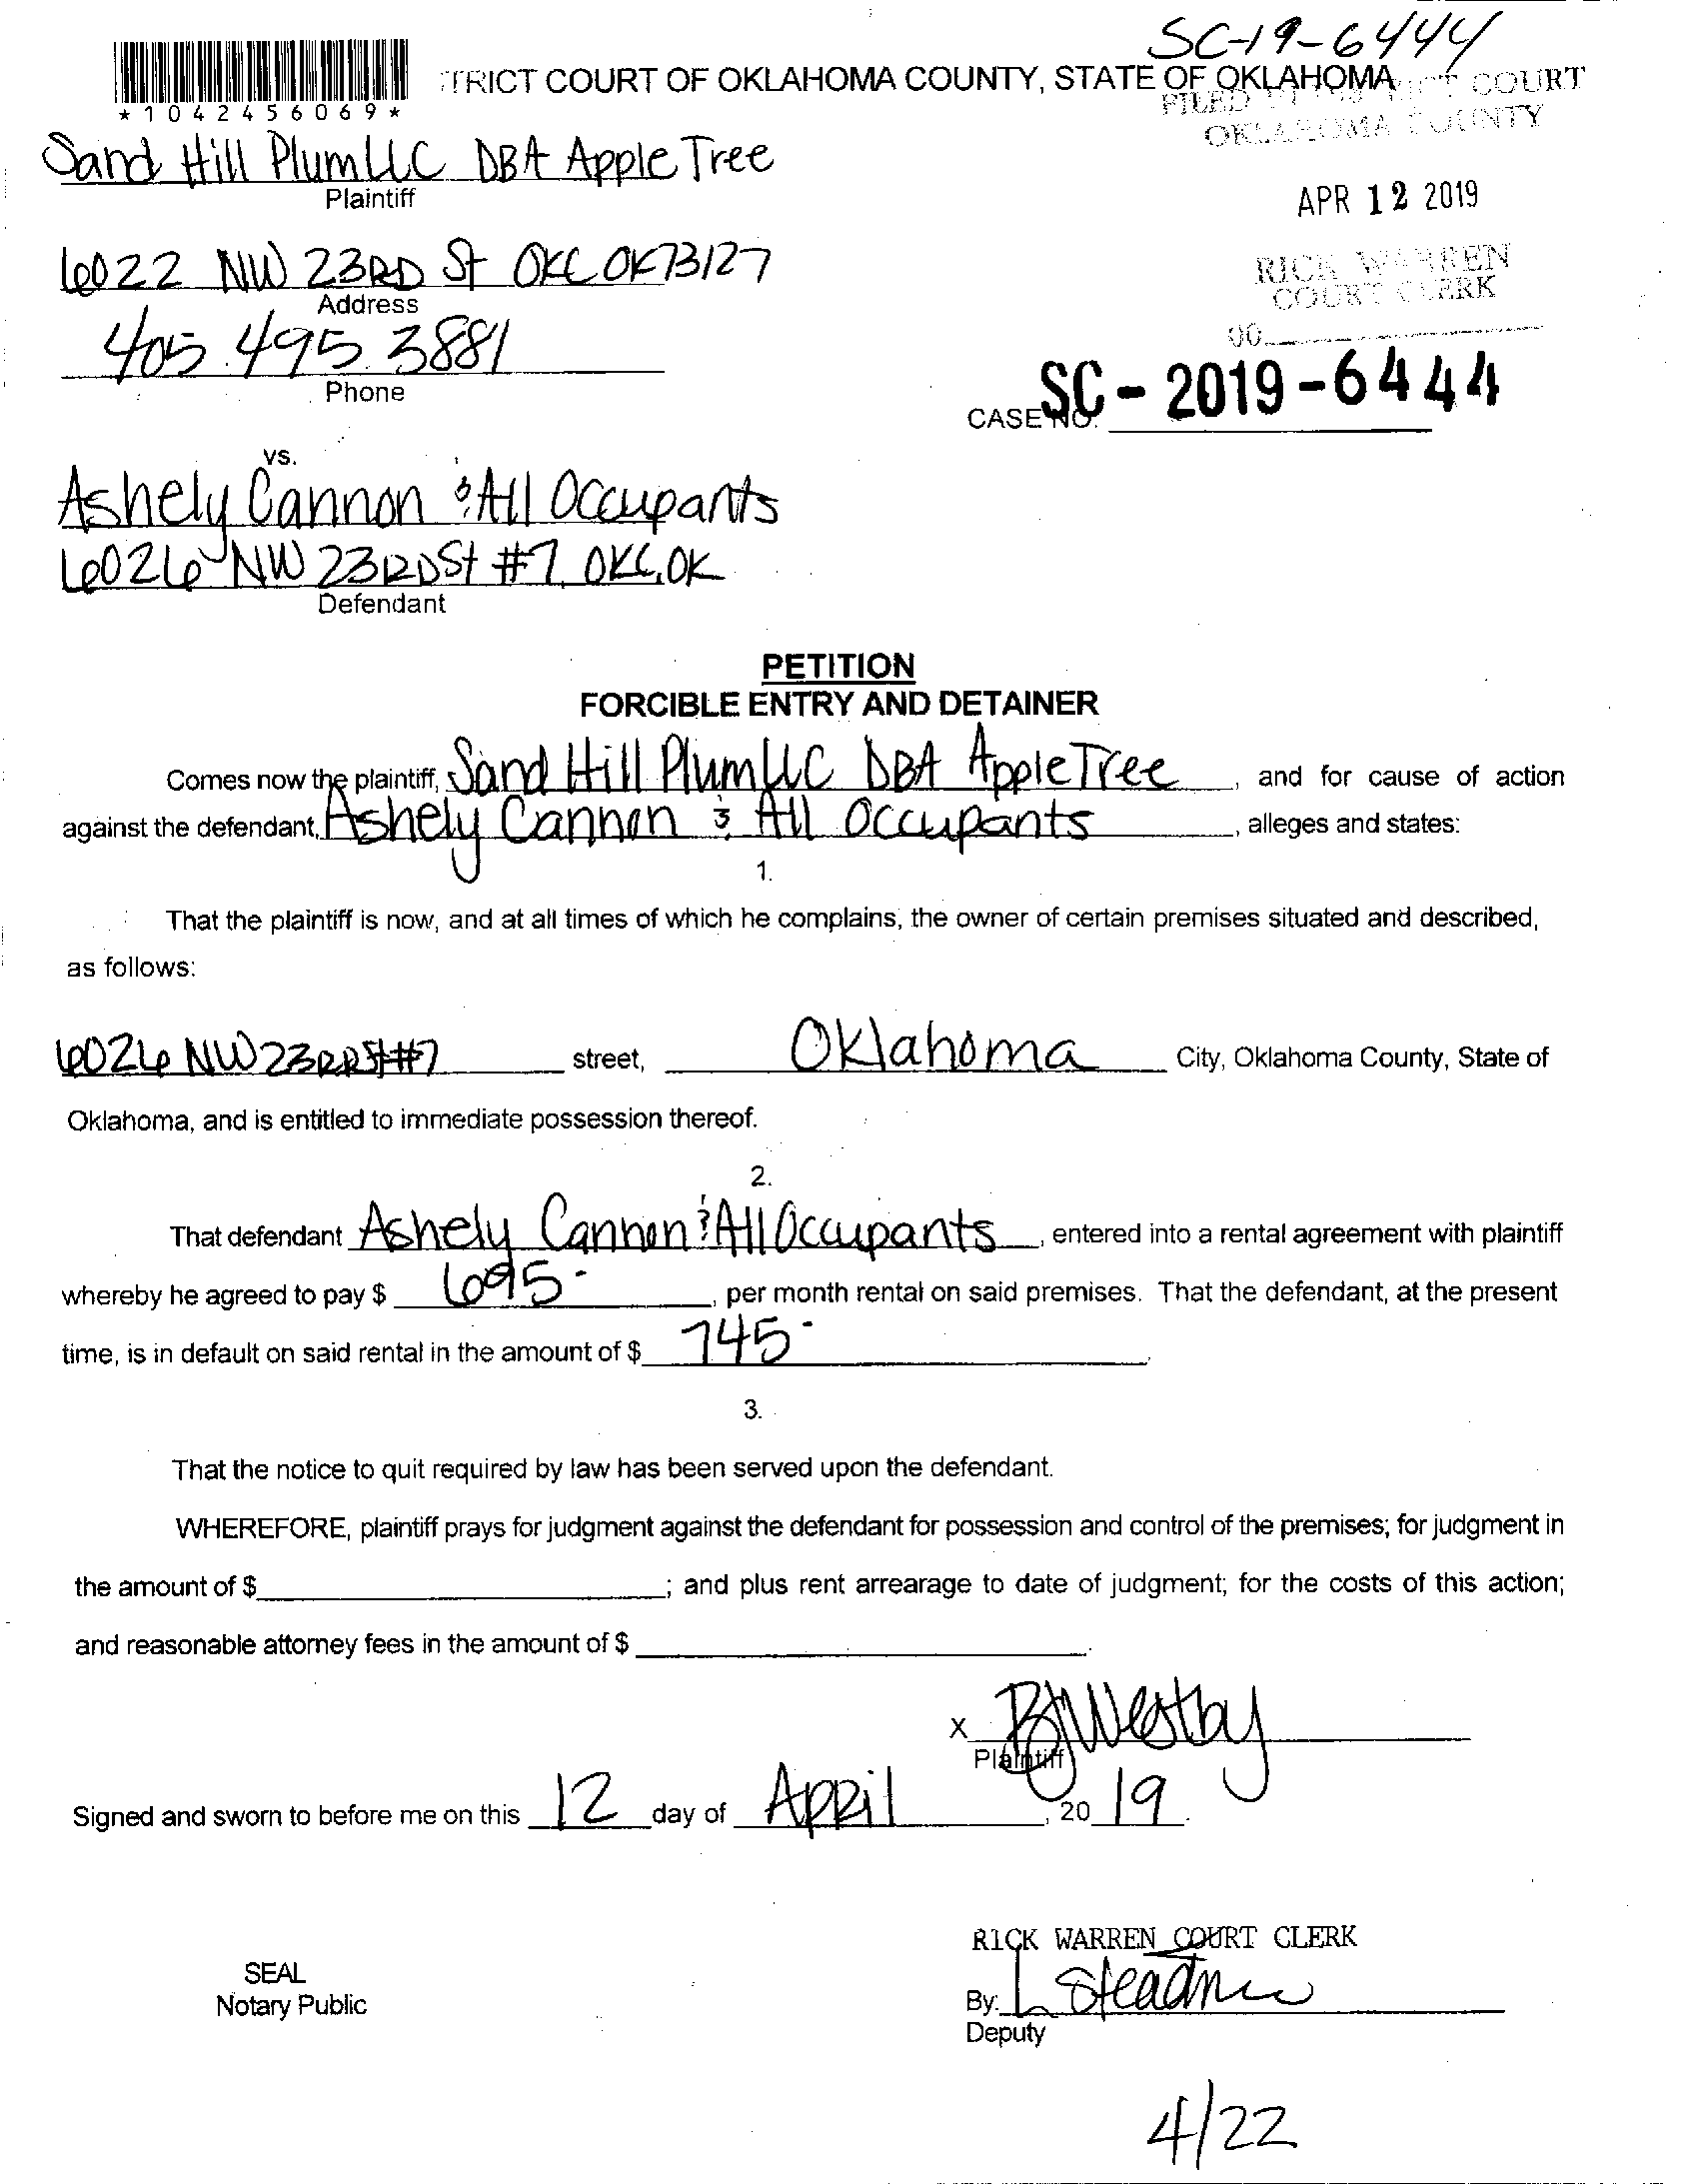 SC-19-6444
TRICT COURT OF OKLAHOMA COUNTY, STATE OF OKLAHOMA
*1042456069*
FILED COURT
OKLAHOMA COUNTY
Sand Hill Plum LLC DBA Apple Tree
Plaintiff
APR 12 2019
6022 NW 23RD St OKC OK 73127
Address
RICK WARREN
COURT CLERK
405.495.3881
Phone
CASE NO. SC-2019-6444
vs.
Ashely Cannon & All Occupants
6026 NW 23RD St #7, OKC, OK
Defendant
PETITION
FORCIBLE ENTRY AND DETAINER
Comes now the plaintiff, Sand Hill Plum LLC DBA Apple Tree, and for cause of action
against the defendant, Ashely Cannon & All Occupants, alleges and states:
1.
That the plaintiff is now, and at all times of which he complains, the owner of certain premises situated and described,
as follows:
6026 NW 23RD St #7 street, Oklahoma City, Oklahoma County, State of
Oklahoma, and is entitled to immediate possession thereof.
2.
That defendant Ashely Cannon & All Occupants, entered into a rental agreement with plaintiff
whereby he agreed to pay $ 695-, per month rental on said premises. That the defendant, at the present
time, is in default on said rental in the amount of $ 745-.
3.
That the notice to quit required by law has been served upon the defendant.
WHEREFORE, plaintiff prays for judgment against the defendant for possession and control of the premises; for judgment in
the amount of $ ; and plus rent arrearage to date of judgment; for the costs of this action;
and reasonable attorney fees in the amount of $ .
X BJWestby
Plaintiff
Signed and sworn to before me on this 12 day of APRil, 20 19.
RICK WARREN COURT CLERK
SEAL
Notary Public
By: L Steadman
Deputy
4/22